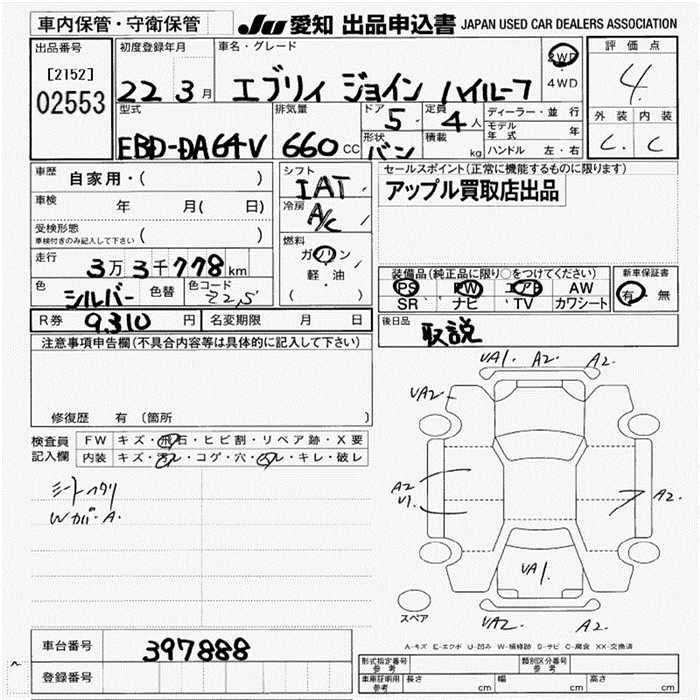 車内保管・守衛保管
JU 愛知 出品申込書 JAPAN USED CAR DEALERS ASSOCIATION
出品番号
[2152]
02553
初度登録年月
22 3月
車名・グレード
エブリィ ジョイン ハイルーフ
2WD
・
4WD
評価点
4.
外装 内装
C. C
型式
EBD-DA64V
排気量
660 CC
ドア
5
定員
4人
形状
バン
積載
kg
ディーラー・並行
モデル年式 年
ハンドル 左・右
車歴 自家用・( )
車検 年 月( 日)
受検形態
車検付きのみ記入して下さい ( )
走行 3万3千778km
色 シルバー 色替 色コード Z2S
シフト
IAT
冷房
A/C
燃料
ガソリン
軽・油
( )
セールスポイント(正常に機能するものに限ります)
アップル買取店出品
装備品(純正品に限り○をつけてください)
PS PW エアB AW
SR ナビ TV カワシート
新車保証書
有・無
R券 9,310 円 名変期限 月 日
後日品 取説
注意事項申告欄(不具合内容等は具体的に記入して下さい)
修復歴 有 (箇所 )
検査員
記入欄
FW キズ・飛石・ヒビ割・リペア跡・X要
内装 キズ・汚レ・コゲ・穴・スレ・キレ・破レ
シートヘタリ
Wカバ・A.
UA1. A2. A2.
UA2
A2
U1.
A2.
UA1.
UA2. A2.
スペア
A-キズ E-エクボ U-凹み W-補修跡 S-サビ C-腐食 XX-交換済
車台番号 397888
登録番号
型式指定番号
参考
類別区分番号
参考
車庫証明用
参考
長さ cm 幅 cm 高さ cm